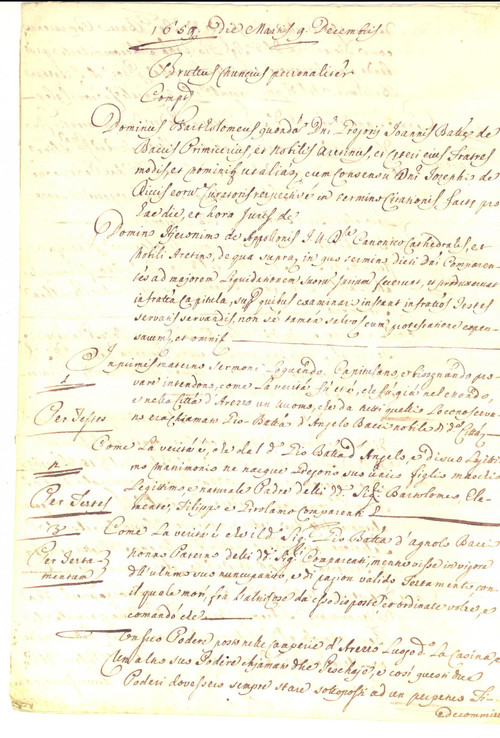 1659. Die Martis 9. Decembris
Bruttus Nuncius personaliter
Comp.t
Dominus Bartholomeus quondam Dni Gregorij Joannis Batte de
Baccis Primicerius, et Nobilis Aretinus, et ceteri eius fratres
modis, et nominibus ut alias, cum consensu Dni Josephi de
Riccis eorum Curatoris respective in termino Citationis facte pro
hac die, et hora Juris de
Domino Hyeronimo de Appollonis J.U.D. Canonico Cathedralis, et
Nobili Aretino, de qua supra, in quo termino dicti Dni Comparen
tes ad majorem liquidationem suorum jurium fecerunt, et produxerunt
infrascritta Capitula, super quibus examinari instant infrascritos Testes
servatis servandis, non se tamen
et omni
In primis materno sermone loquendo, Capitulano, e bisognando pro
vare intendono, come la verità fù, et è, che fù, già nel mondo,
e nella Città d'Arezzo un Uomo, che da tutti quelli lo conosceva
no era chiamato Gio: Batta d'Angelo Bacci nobile di d.a Città
1
Per Testes
Come la verità è, che dal d.o Gio Batta d'Angelo, e di suo legitti
mo matrimonio ne nacque Gregorio suo unico figlio maschio
legittimo e naturale Padre delli dd. Sig.ri Bartolomeo Cle
mente, Filippo e Girolamo Comparenti
2
Per Testes
Come la verità è che il d.o Sig.r Gio Batta d'Agnolo Bacci
Nonno Paterno delli dd. Sig.ri Comparenti, menno visse in vigore
dell'ultimo suo nuncupativo, e di ragion valido Testamento, con
il quale morì, fra l'altre cose da esso disposte et ordinate volse, e
comandò che
3
Per Testa
mentum
Un suo Podere posto nelle Camperie d'Arezzo Luogo d.o La Casina, e
Un altro suo Podere chiamato
Poderi dovessero sempre stare sottoposti ad un perpetuo Fi-
decommisso